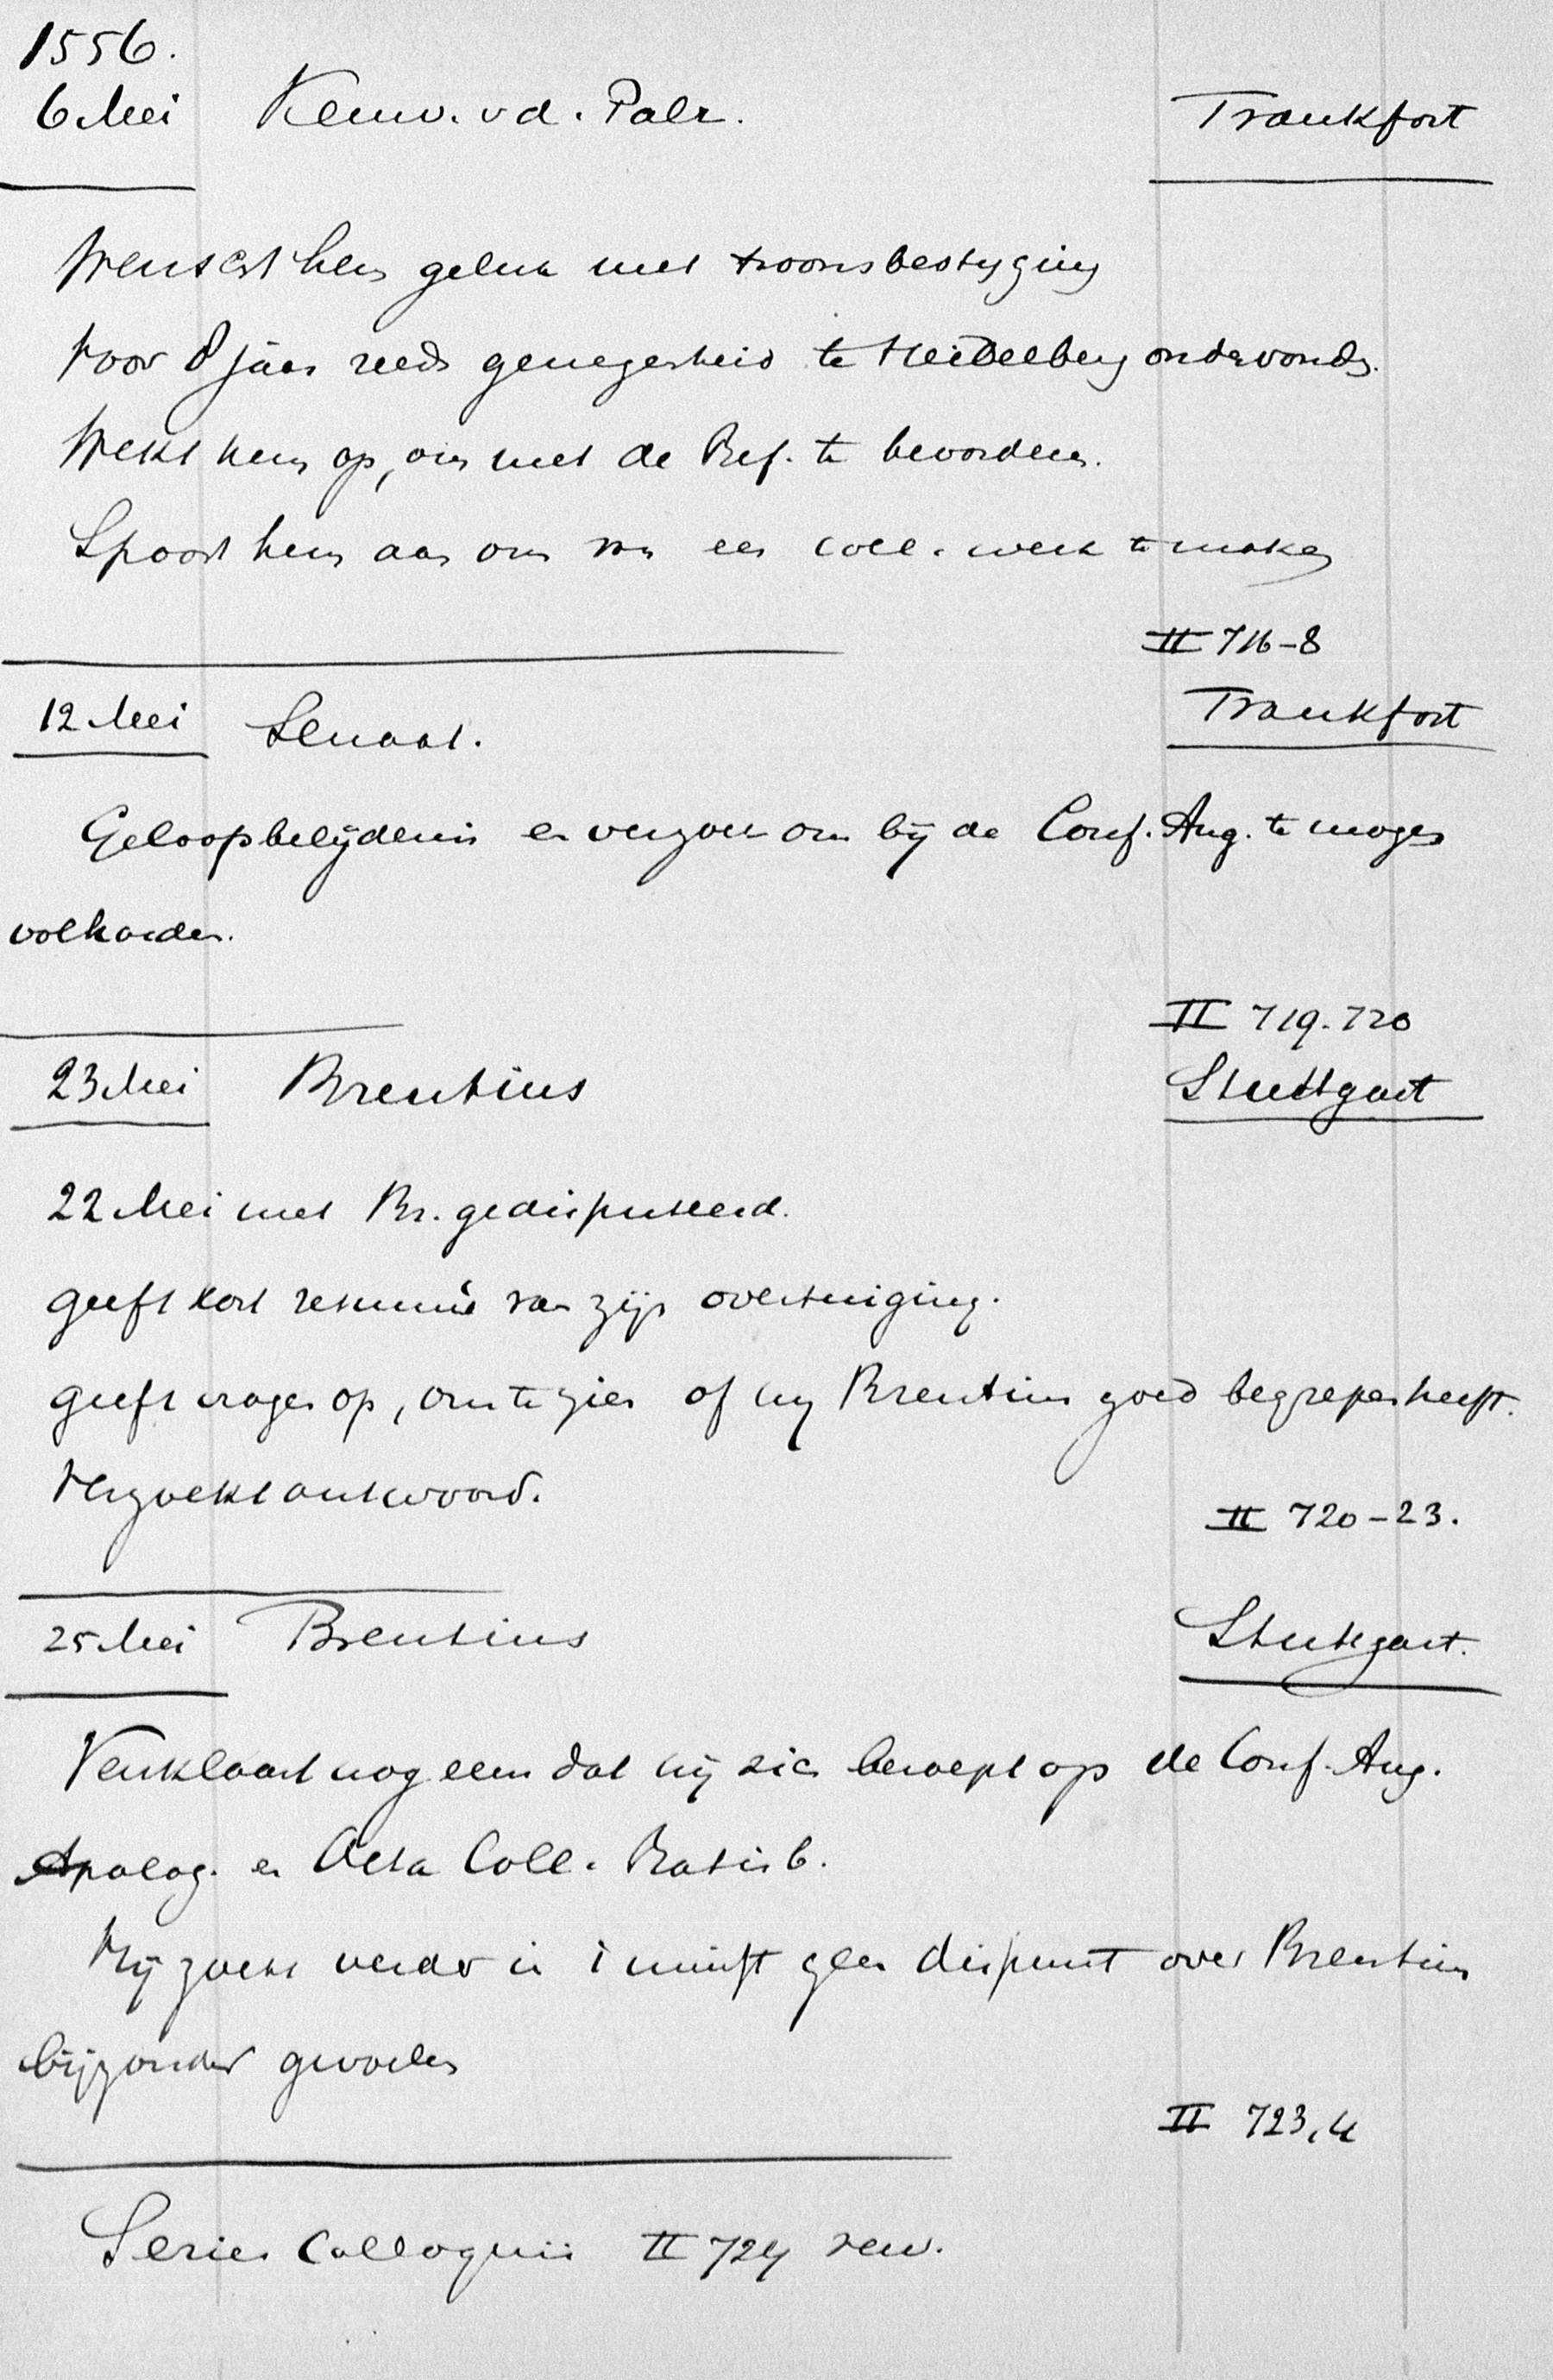 1556.
6 Mei Keurv. v d. Palz. Frankfort
Wenscht hem geluk met troonsbestyging
Voor 8 jaar reeds genegenheid te Heidelberg ondervonden.
Wekt hem op, om met de Ref. te bevorderen.
Spoort hem aan om van een coll. werk te maken
II 716-8
12 Mei Senaat. Frankfort
Geloofsbelijdenis en verzoek om bij de Conf. Aug. te mogen
volharden.
II 719-720
23 Mei Brentius Stuttgart
22 Mei met Br. gedisputeerd.
geeft kort resumé van zijn overtuiging.
geeft vragen op, om te zien of hy Brentius goed begrepen heeft.
Verzoekt antwoord.
II 720-23.
25 Mei Brentius Stuttgart.
Verklaart nog eens dat hij zich beroept op de Conf. Aug.
Apolog. en Acta Coll. Ratisb.
Hij zoekt verder in 't minst geen dispuut over Brentius
bijzonder gevoelen
II 723,4
Series Colloquii II 724 verv.